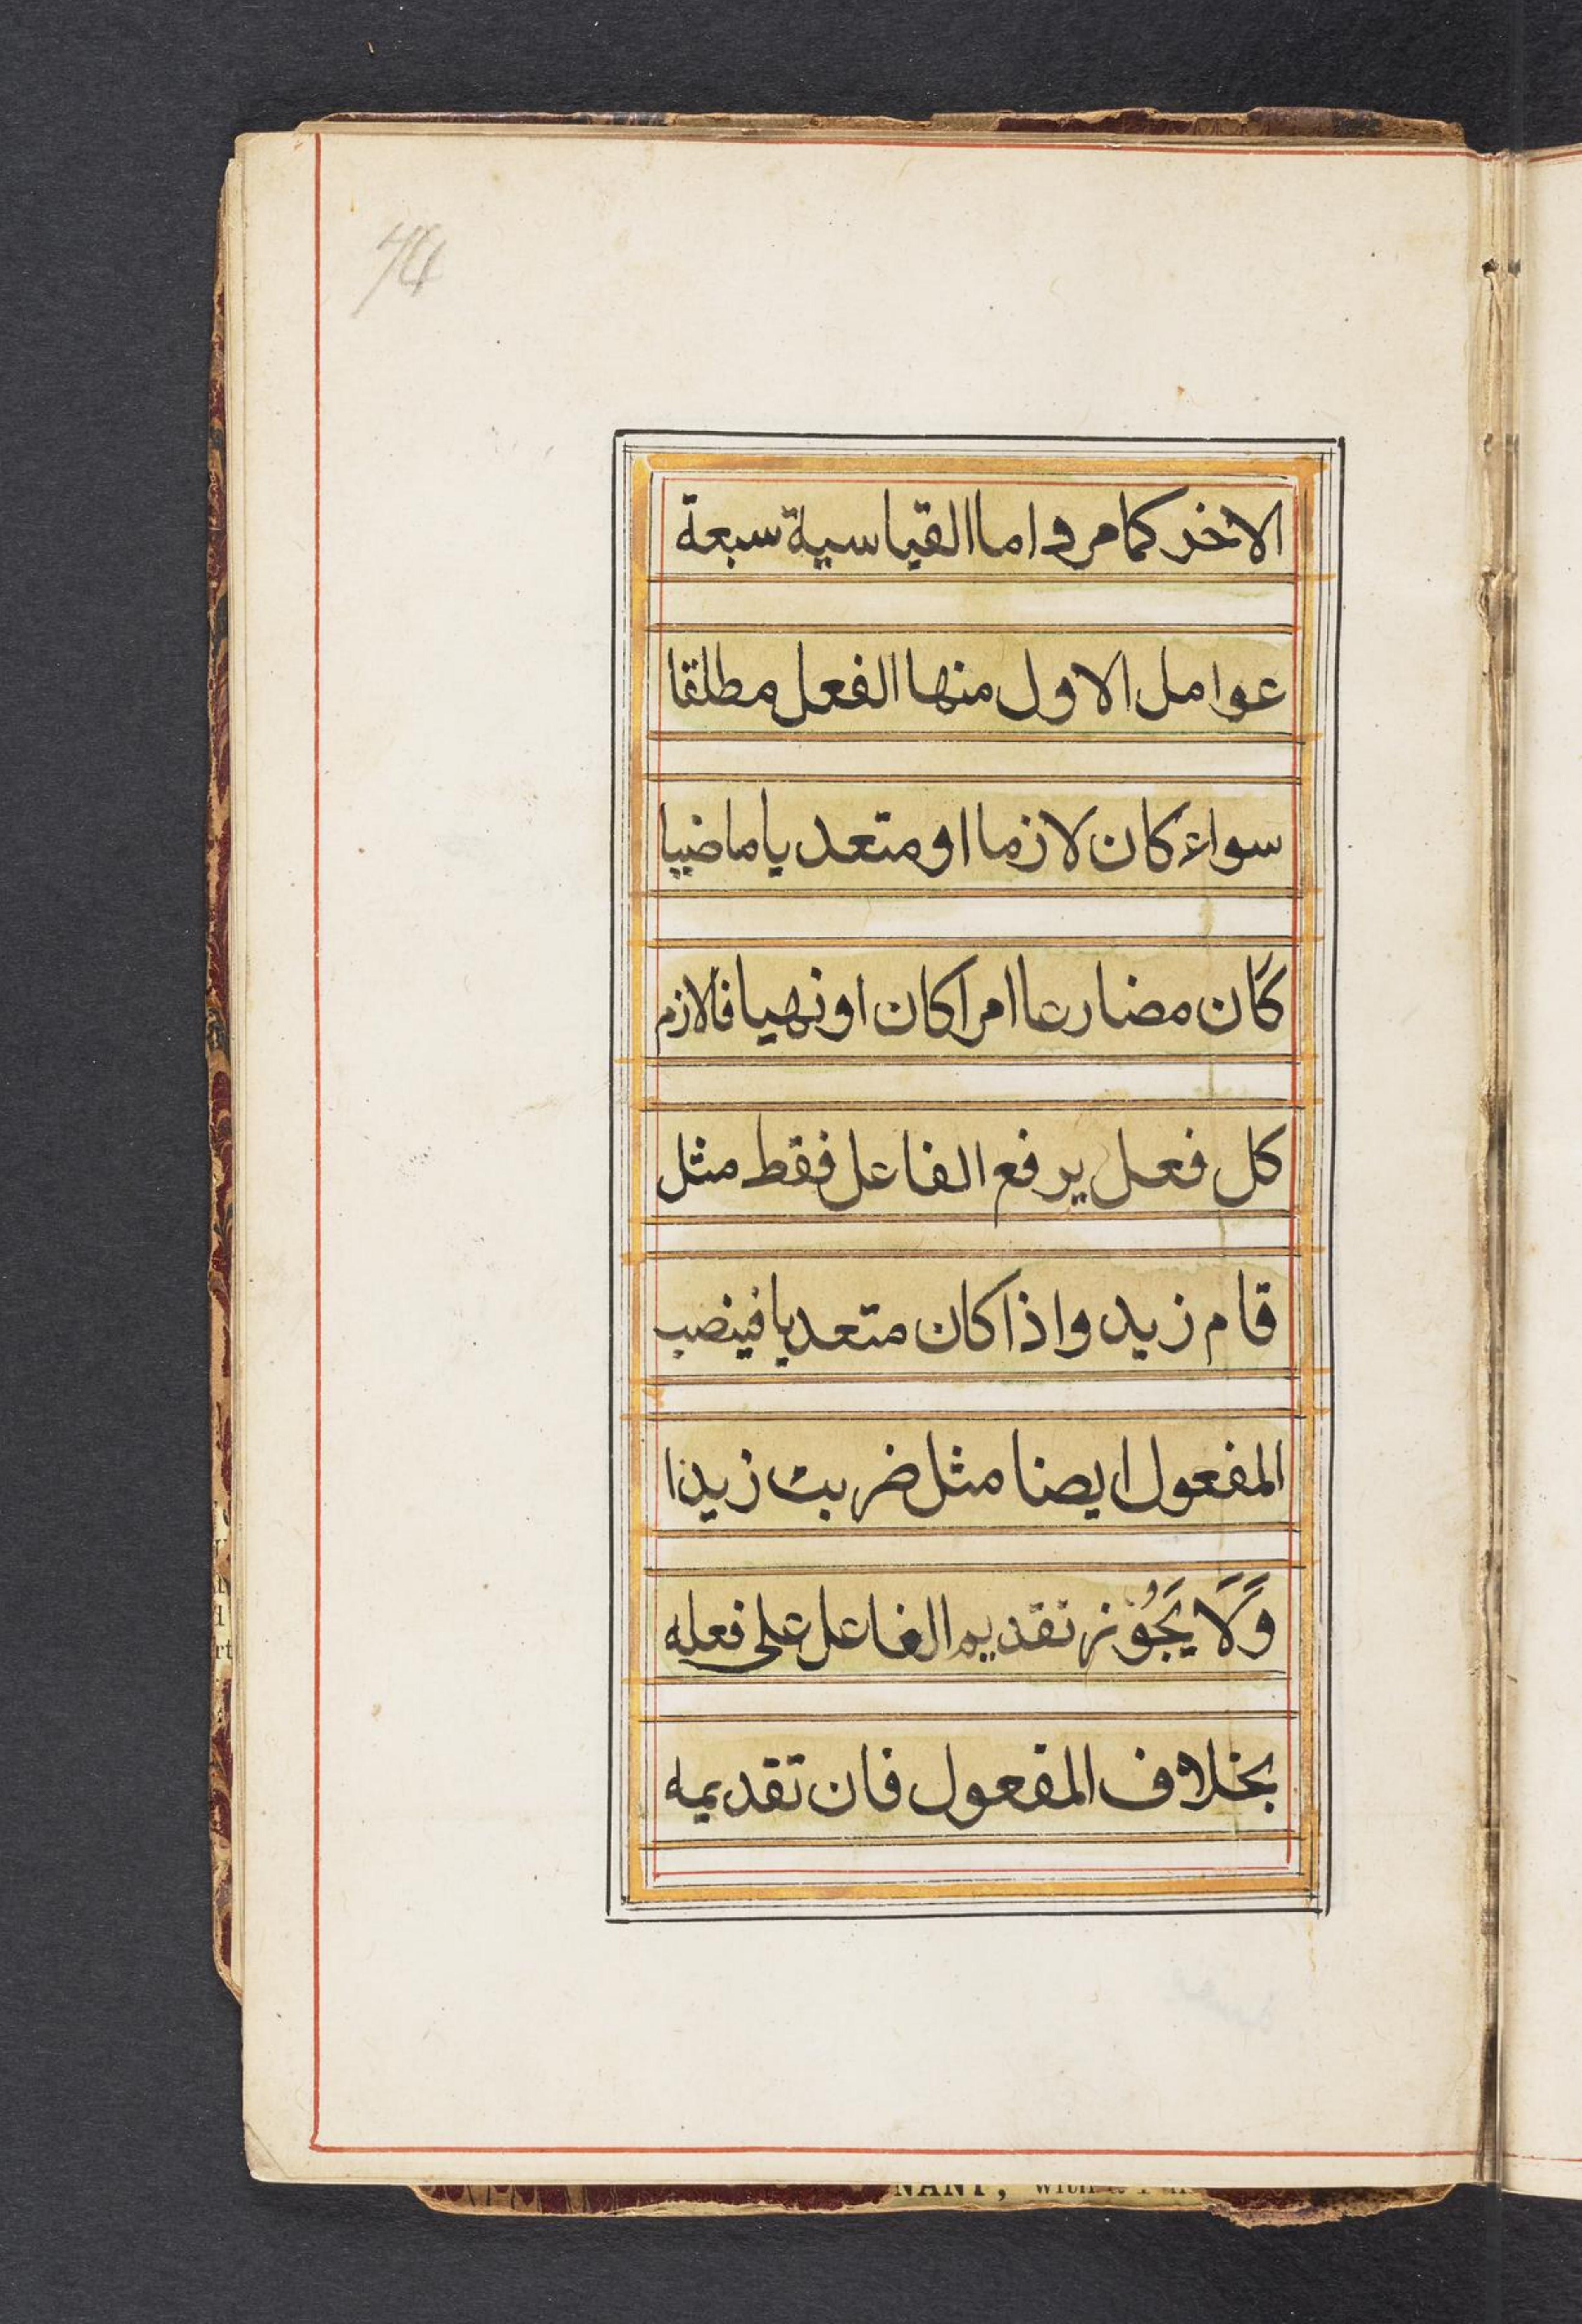 الاخر كما مر و اما القياسية سبعة
عوامل الاول منها الفعل مطلقا
سواء كان لازما او متعديا ماضيا
كان مضارعا امرا كان او نهيا فالازم
كل فعل يرفع الفاعل فقط مثل
قام زيد واذا كان متعديا فينصب
المفعول ايضا مثل ضربت زيدا
وَلَا يَجُوز تقديم الفاعل على فعله
بخلاف المفعول فان تقديمه
NANT, with